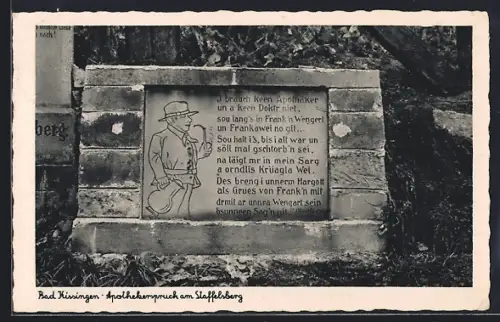 berg
J brauch keen Apotheker
un a keen Doktr niet,
solang's in Frank'n Wengert
un Frankawei no git...
So halt i's, bis i alt war un
söll mal gschtorb'n sei,
na läigt mr in mein Sarg
a orndlis Krüagla Wei.
Des breng i unnerm Hargott
als Grues von Frank'n mit
drmit ar unnra Wengart sein
bsunnern Sag'n
Bad Kissingen · Apothekerspruch am Staffelsberg